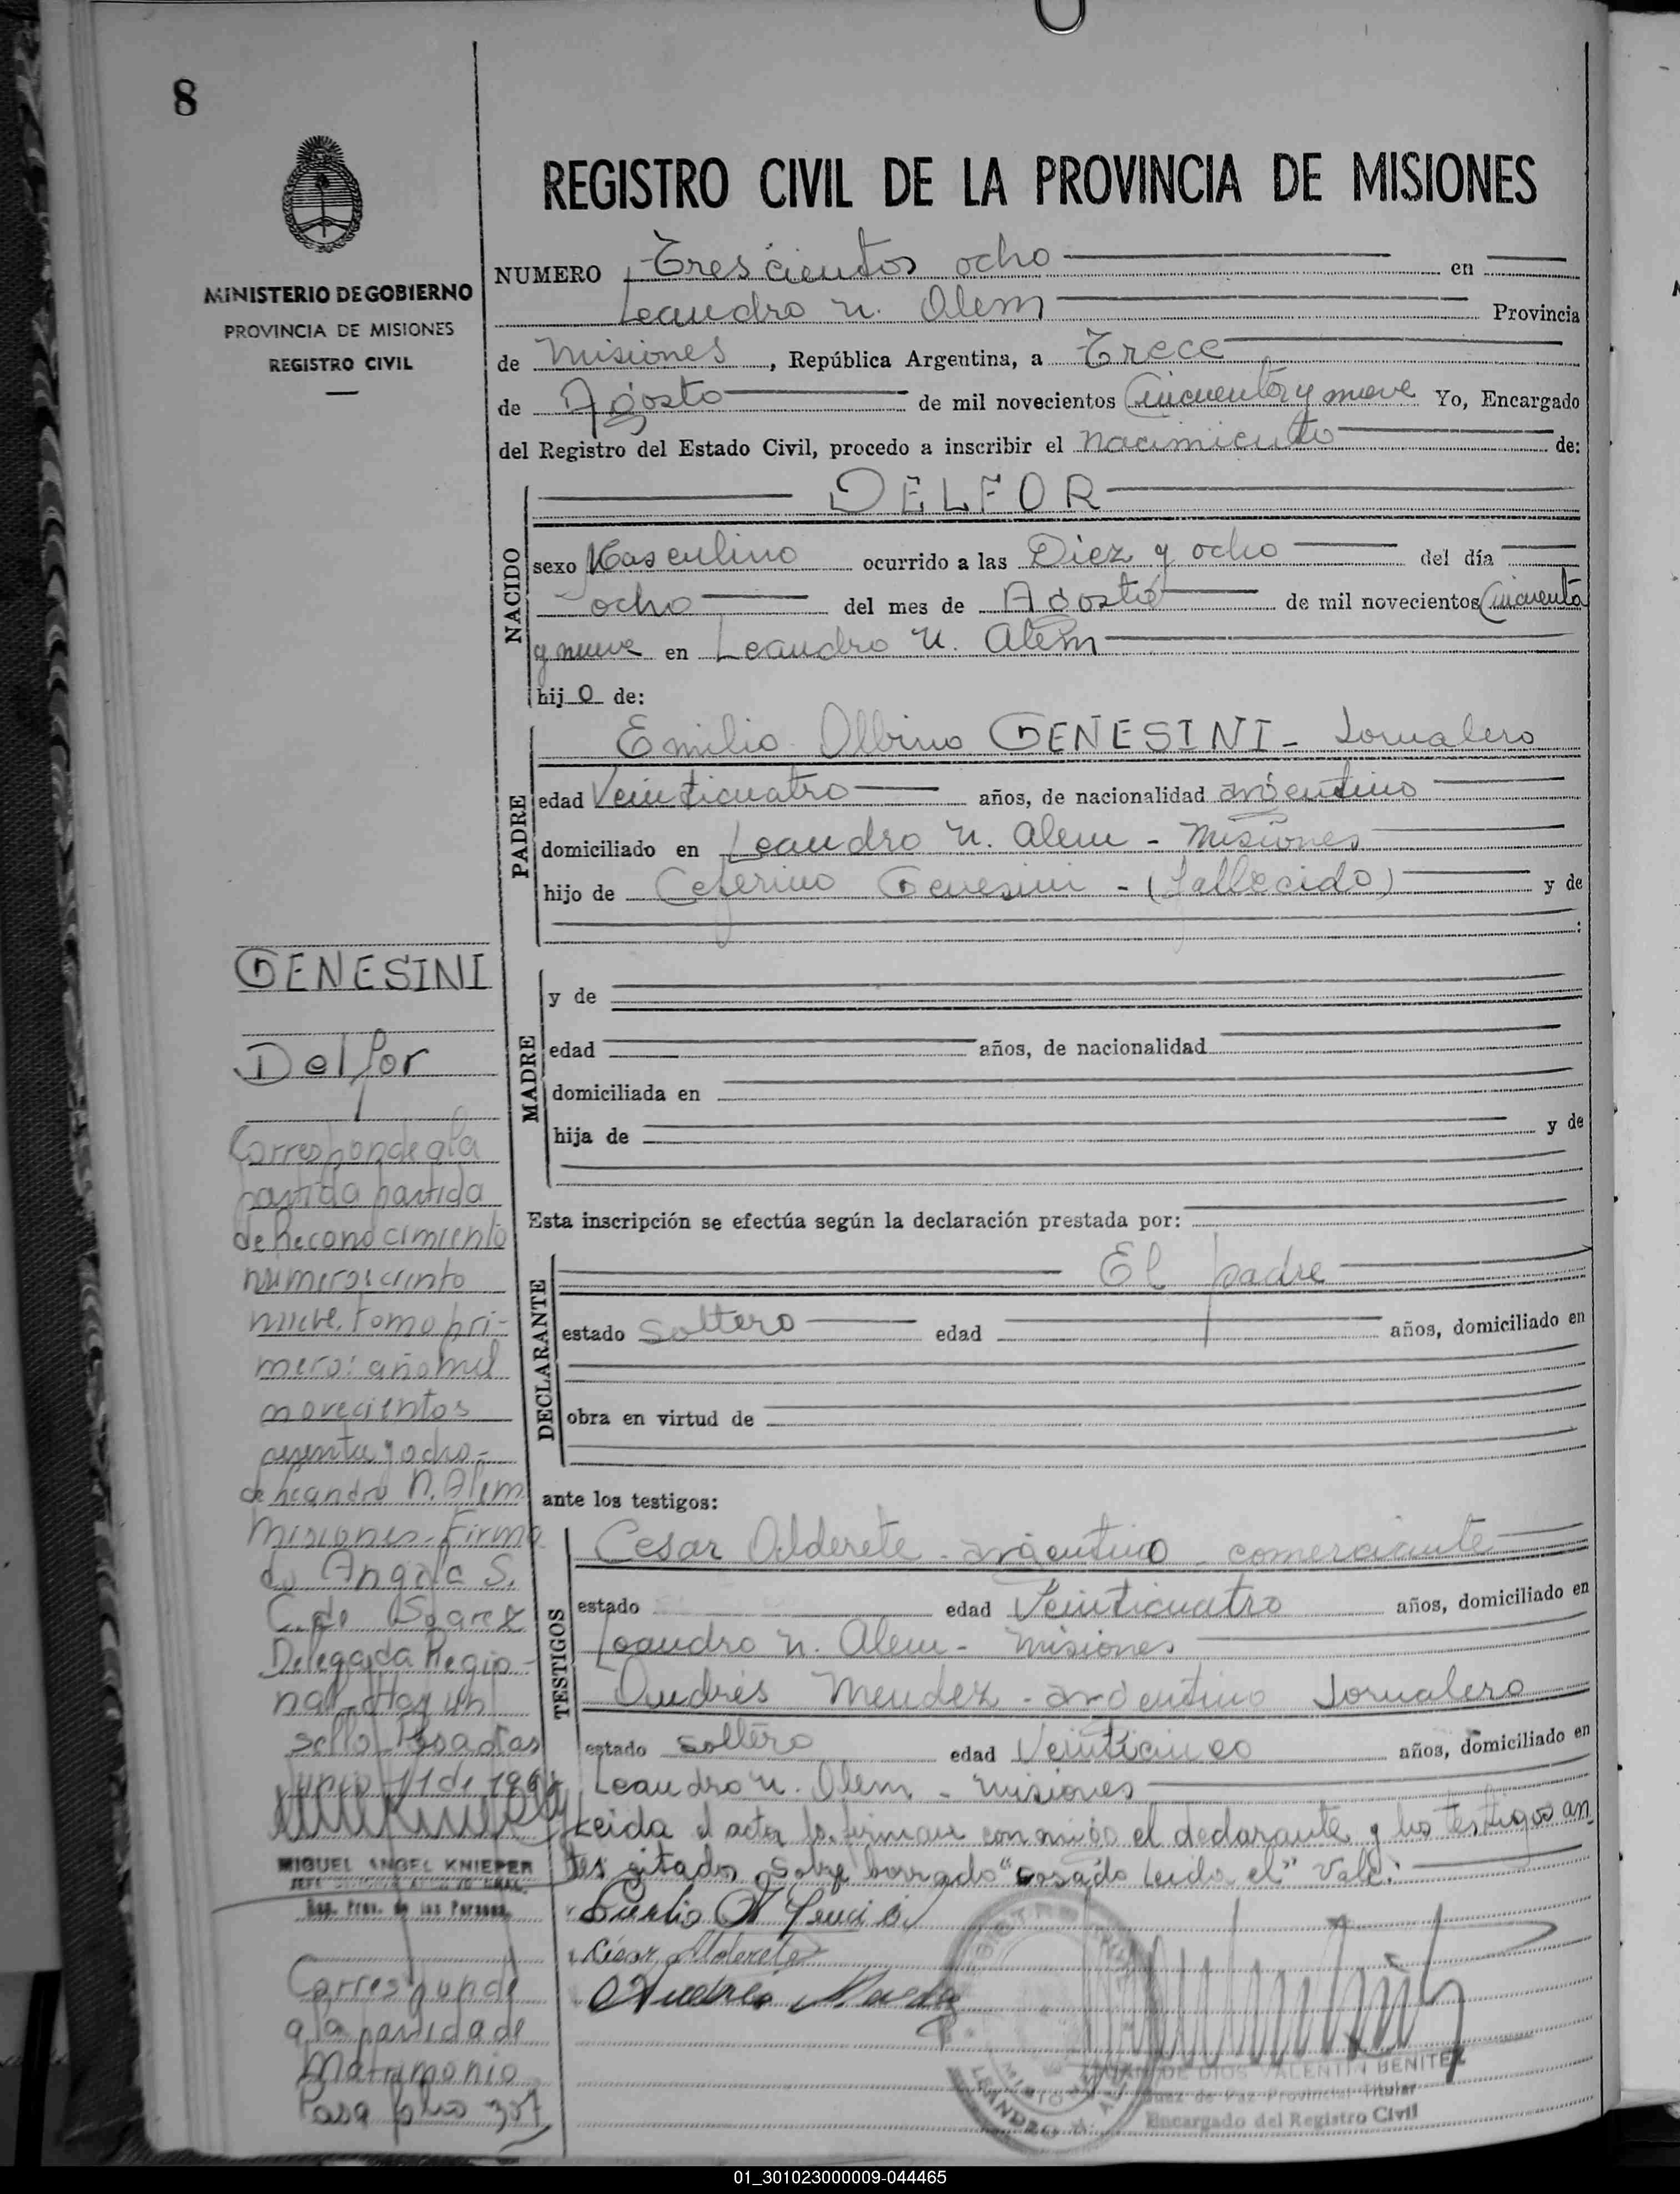 8
MINISTERIO DE GOBIERNO
PROVINCIA DE MISIONES
REGISTRO CIVIL
REGISTRO CIVIL DE LA PROVINCIA DE MISIONES
NUMERO Trescientos ocho en
Leandro N. Alem Provincia
de Misiones, República Argentina, a Trece
de Agosto de mil novecientos Cincuenta y nueve Yo, Encargado
del Registro del Estado Civil, procedo a inscribir el nacimiento de:
NACIDO
DELFOR
sexo Masculino ocurrido a las Diez y ocho del día
ocho del mes de Agosto de mil novecientos Cincuenta
y nueve en Leandro N. Alem
hijo de:
PADRE
Emilio Albino GENESINI - Jornalero
edad Veinticuatro años, de nacionalidad argentino
domiciliado en Leandro N. Alem - Misiones
hijo de Ceferino Genesini - (fallecido) y de
:
MADRE
y de
edad años, de nacionalidad
domiciliada en
hija de y de
Esta inscripción se efectúa según la declaración prestada por:
DECLARANTE
El padre
estado soltero edad años, domiciliado en
obra en virtud de
ante los testigos:
TESTIGOS
Cesar Alderete - argentino - comerciante
estado edad Veinticuatro años, domiciliado en
Leandro N. Alem - Misiones
Andrés Mendez - argentino Jornalero
estado soltero edad Veinticinco años, domiciliado en
Leandro N. Alem - Misiones
Leida el acta la firman conmigo el declarante y los testigos an
tes citados, Sobre borrado "casado Leida el" Vale.
Cesar Alderete
Andrés
JUAN DE DIOS VALENTIN BENITEZ
Juez de Paz Provincial Titular
Encargado del Registro Civil
GENESINI
Delfor
Corresponde a la
partida partida
de Reconocimiento
numero: ciento
nueve. tomo pri-
mero: año mil
novecientos
sesenta y ocho-
de Leandro N. Alem
Misiones. Firma
do Angela S.
C. de Suarez
Delegada Regio-
nal. Hay un
sello. Posadas
Junio 11 de 1968
MIGUEL ANGEL KNIEPER
Reg. Prov. de las Personas
Corresponde
a la partida de
Matrimonio
Pasa folio 307
01_301023000009-044465